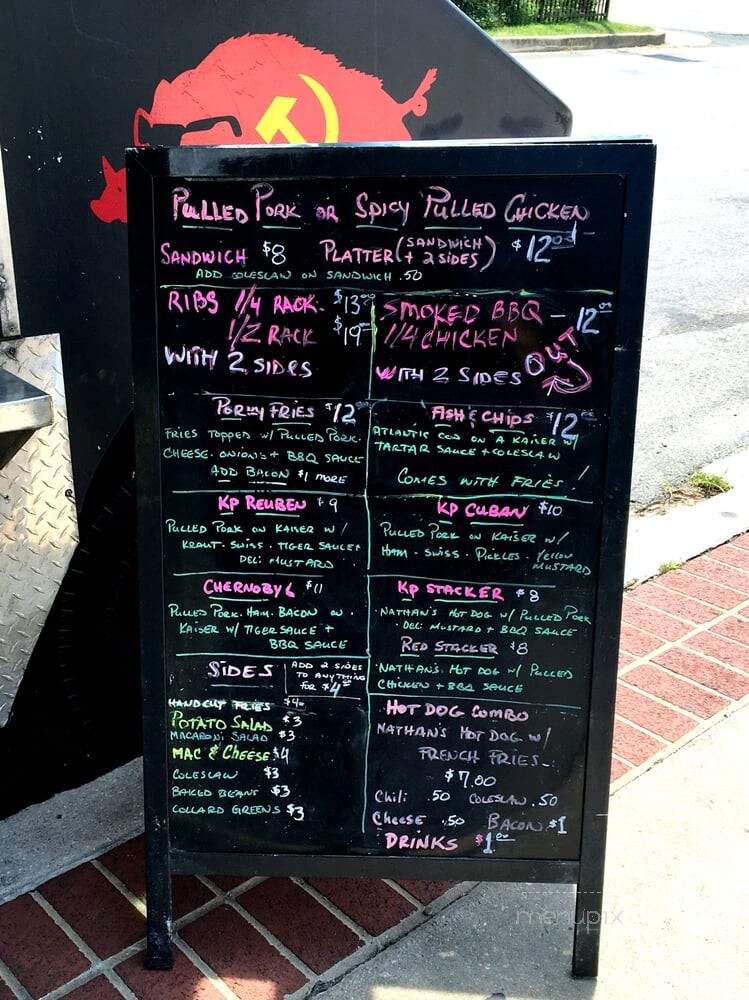 PULLED PORK OR SPICY PULLED CHICKEN
SANDWICH $8 PLATTER (SANDWICH + 2 SIDES) $12.00
ADD COLESLAW ON SANDWICH .50
RIBS 1/4 RACK $13.00
1/2 RACK $19
WITH 2 SIDES
SMOKED BBQ — 12.00
1/4 CHICKEN
WITH 2 SIDES
PORKY FRIES $12.00
FRIES TOPPED W/ PULLED PORK.
CHEESE. ONIONS + BBQ SAUCE
ADD BACON $1 MORE
FISH & CHIPS $12
ATLANTIC COD ON A KAISER W/
TARTAR SAUCE + COLESLAW
COMES WITH FRIES!
KP REUBEN $9
PULLED PORK ON KAISER W/
KRAUT. SWISS. TIGER SAUCE +
DELI MUSTARD
KP CUBAN $10
PULLED PORK ON KAISER W/
HAM. SWISS. PICKLES. YELLOW
MUSTARD
CHERNOBYL $11
PULLED PORK. HAM. BACON ON.
KAISER W/ TIGER SAUCE +
BBQ SAUCE
KP STACKER $8
NATHAN'S HOT DOG W/ PULLED PORK
DELI MUSTARD + BBQ SAUCE
RED STACKER $8
NATHAN'S HOT DOG W/ PULLED
CHICKEN + BBQ SAUCE
SIDES
ADD 2 SIDES
TO ANYTHING
FOR $4.00
HANDCUT FRIES $4
POTATO SALAD $3
MACARONI SALAD $3
MAC & CHEESE $4
COLESLAW $3
BAKED BEANS $3
COLLARD GREENS $3
HOT DOG COMBO
NATHAN'S HOT DOG W/
FRENCH FRIES.
$7.00
CHILI .50 COLESLAW .50
CHEESE .50 BACON $1
DRINKS $1.00
menupix